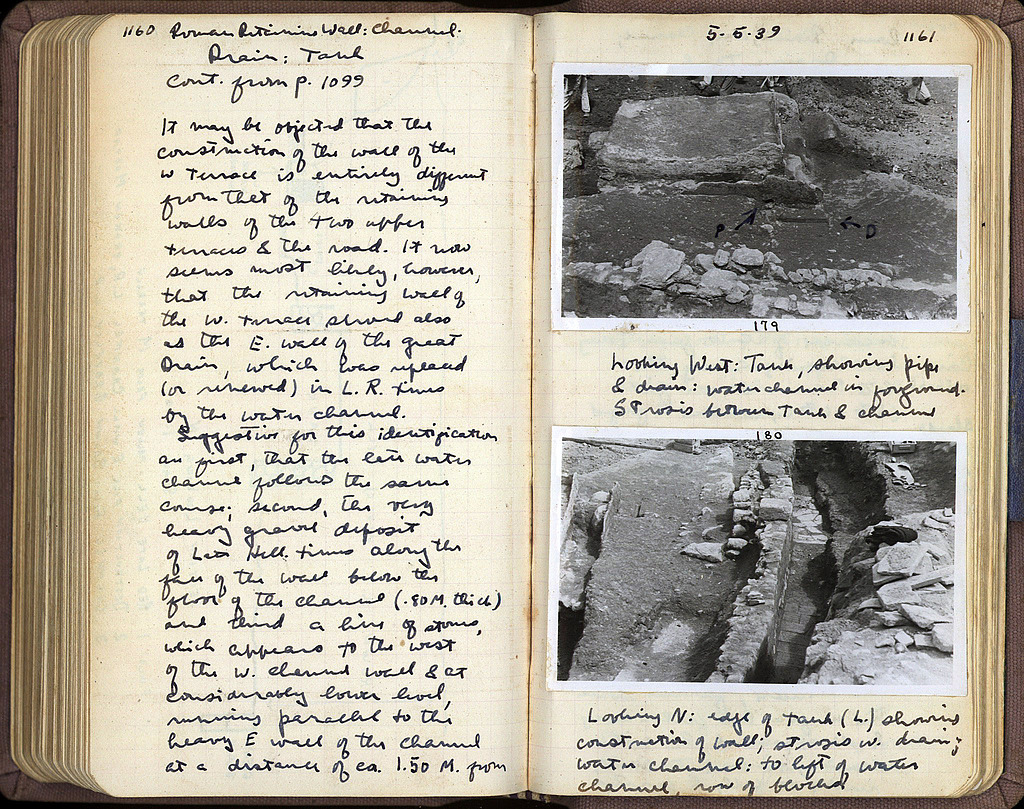 1160 Roman Retaining Wall: Channel.
Drain: Tank
Cont. from p. 1099
It may be objected that the
construction of the wall of the
W Terrace is entirely different
from that of the retaining
walls of the two upper
terraces & the road. It now
seems most likely, however,
that the retaining wall of
the W. terrace served also
as the E. wall of the great
Drain, which was replaced
(or renewed) in L. R. times
by the water channel.
Suggestive for this identification
are first, that the late water
channel follows the same
course; second, the very
heavy gravel deposit
of Late Hell. times along the
face of the wall below the
floor of the channel (.80 M. thick)
and third a line of stones,
which appears to the west
of the W. channel wall & at
considerably lower level,
running parallel to the
heavy E wall of the channel
at a distance of ca. 1.50 M. from
5-5-39 1161
P D
179
Looking West: Tank, showing pipe
& drain: water channel in foreground.
Strosis between Tank & channel
180
L
Looking N: edge of tank (L.) showing
construction of wall; strosis w. drain;
water channel: to left of water
channel, row of blocks